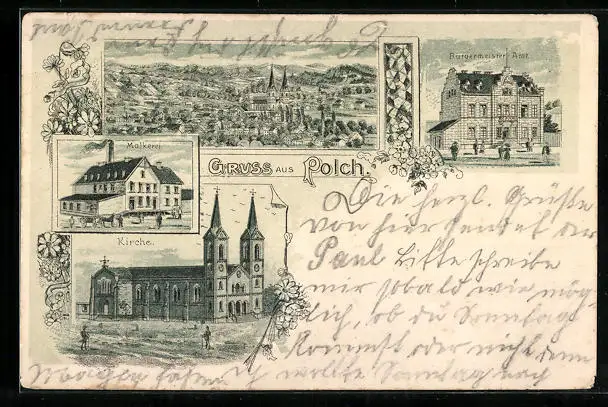 Bürgermeister-Amt.
Molkerei
GRUSS AUS Polch.
Kirche.
Die herzl. Grüße
von hier sendet der
Paul Bitte schreibe
mir sobald wie mög-
lich, ob du Sonntag
kommst oder nicht denn
ich wollte Sonntag